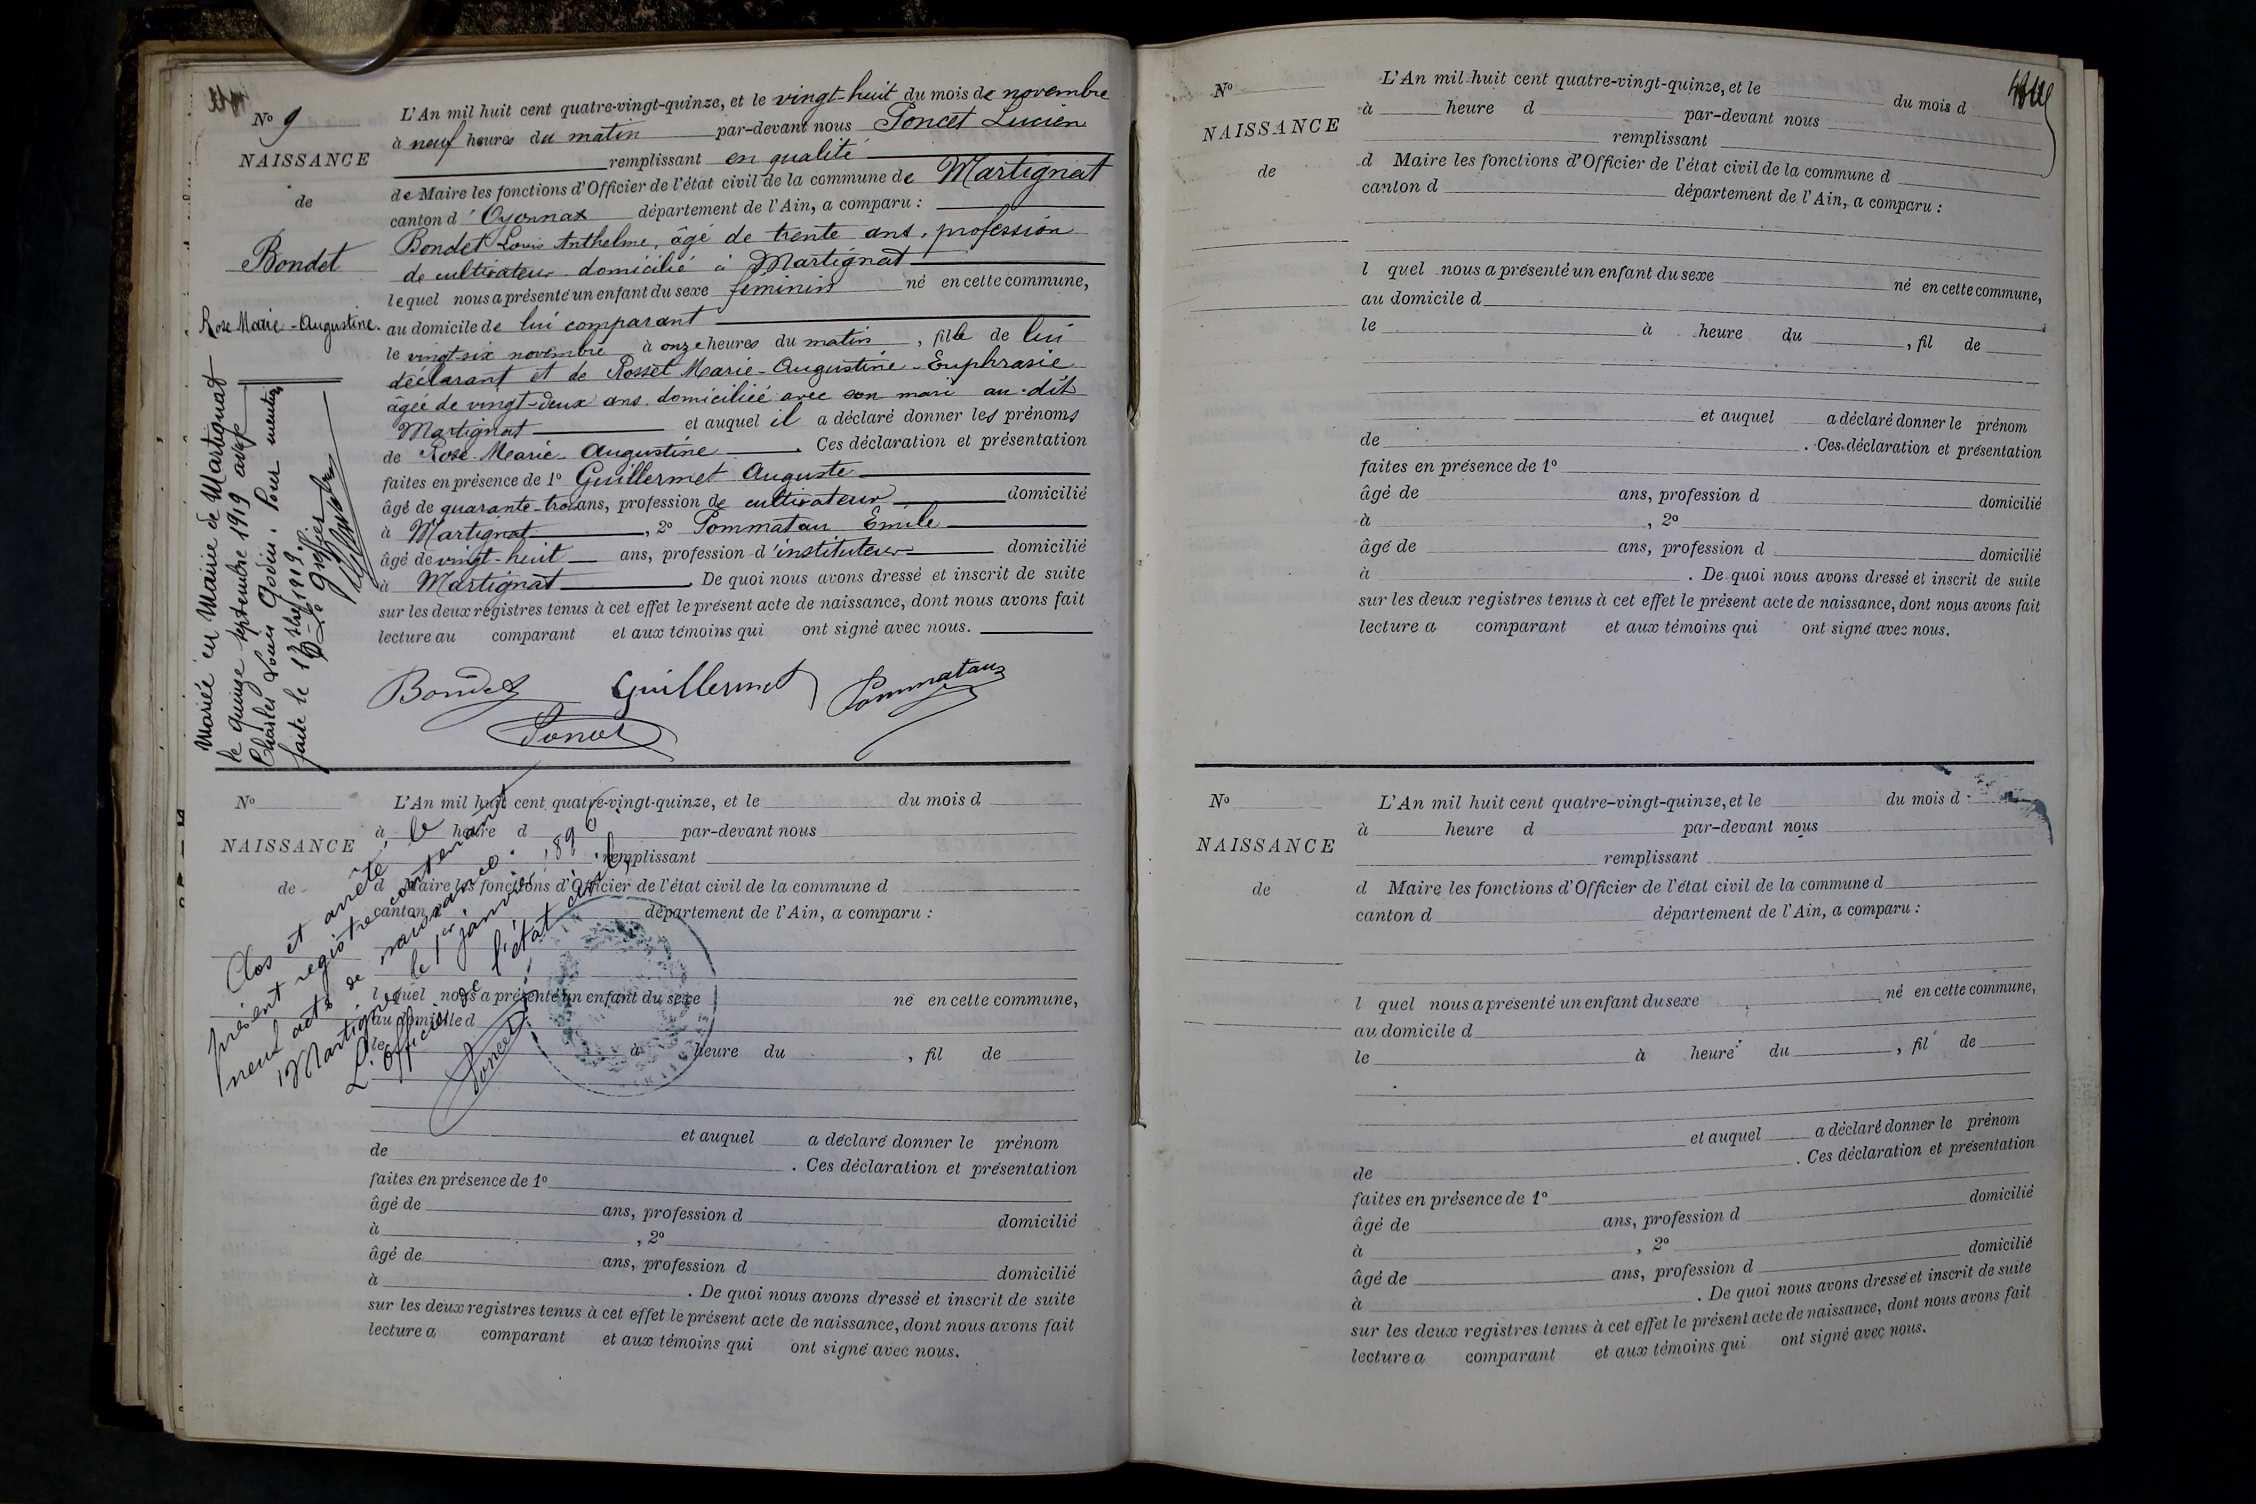 Nº 9
NAISSANCE
de
Bondet
Rose Marie-Augustine.
L'An mil huit cent quatre-vingt-quinze, et le vingt-huit du mois de novembre
à neuf heures du matin par-devant nous Poncet Lucien
remplissant en qualité
de Maire les fonctions d'Officier de l'état civil de la commune de Martignat
canton d'Oyonnax département de l'Ain, a comparu :
Bondet Louis Anthelme, âgé de trente ans, profession
de cultivateur domicilié à Martignat
lequel nous a présenté un enfant du sexe féminin né en cette commune,
au domicile de lui comparant
le vingt-six novembre à onze heures du matin, fille de lui
déclarant et de Rosset Marie-Augustine-Euphrasie
âgée de vingt-deux ans domiciliée avec son mari au dit
Martignat et auquel il a déclaré donner les prénoms
de Rose-Marie-Augustine. Ces déclaration et présentation
faites en présence de 1º Guillermet Auguste
âgé de quarante-trois ans, profession de cultivateur domicilié
à Martignat, 2º Pommatau Emile
âgé de vingt-huit ans, profession d'instituteur domicilié
à Martignat. De quoi nous avons dressé et inscrit de suite
sur les deux registres tenus à cet effet le présent acte de naissance, dont nous avons fait
lecture au comparant et aux témoins qui ont signé avec nous.
Bondet Guillermet Pommatau
Poncet
Mariée en Mairie de Martignat
le quinze septembre 1919 avec
Charles Louis Godin. Pour mention
faite le 17 1919.
Le Greffier
Nº
NAISSANCE
de
L'An mil huit cent quatre-vingt-quinze, et le du mois d
à heure d par-devant nous
remplissant
d Maire les fonctions d'Officier de l'état civil de la commune d
canton d département de l'Ain, a comparu :
l quel nous a présenté un enfant du sexe né en cette commune,
au domicile d
le à heure du , fil de
et auquel a déclaré donner le prénom
de . Ces déclaration et présentation
faites en présence de 1º
âgé de ans, profession d domicilié
à , 2º
âgé de ans, profession d domicilié
à . De quoi nous avons dressé et inscrit de suite
sur les deux registres tenus à cet effet le présent acte de naissance, dont nous avons fait
lecture a comparant et aux témoins qui ont signé avec nous.
Clos et arrêté, le
présent registre contenant
neuf acts de naissance.
Martignat le 1er janvier 1896.
L'officier de l'état civil,
Poncet
Nº
NAISSANCE
de
L'An mil huit cent quatre-vingt-quinze, et le du mois d
à heure d par-devant nous
remplissant
d Maire les fonctions d'Officier de l'état civil de la commune d
canton d département de l'Ain, a comparu :
l quel nous a présenté un enfant du sexe né en cette commune,
au domicile d
le à heure du , fil de
et auquel a déclaré donner le prénom
de . Ces déclaration et présentation
faites en présence de 1º
âgé de ans, profession d domicilié
à , 2º
âgé de ans, profession d domicilié
à . De quoi nous avons dressé et inscrit de suite
sur les deux registres tenus à cet effet le présent acte de naissance, dont nous avons fait
lecture a comparant et aux témoins qui ont signé avec nous.
Nº
NAISSANCE
de
L'An mil huit cent quatre-vingt-quinze, et le du mois d
à heure d par-devant nous
remplissant
d Maire les fonctions d'Officier de l'état civil de la commune d
canton d département de l'Ain, a comparu :
l quel nous a présenté un enfant du sexe né en cette commune,
au domicile d
le à heure du , fil de
et auquel a déclaré donner le prénom
de . Ces déclaration et présentation
faites en présence de 1º
âgé de ans, profession d domicilié
à , 2º
âgé de ans, profession d domicilié
à . De quoi nous avons dressé et inscrit de suite
sur les deux registres tenus à cet effet le présent acte de naissance, dont nous avons fait
lecture a comparant et aux témoins qui ont signé avec nous.